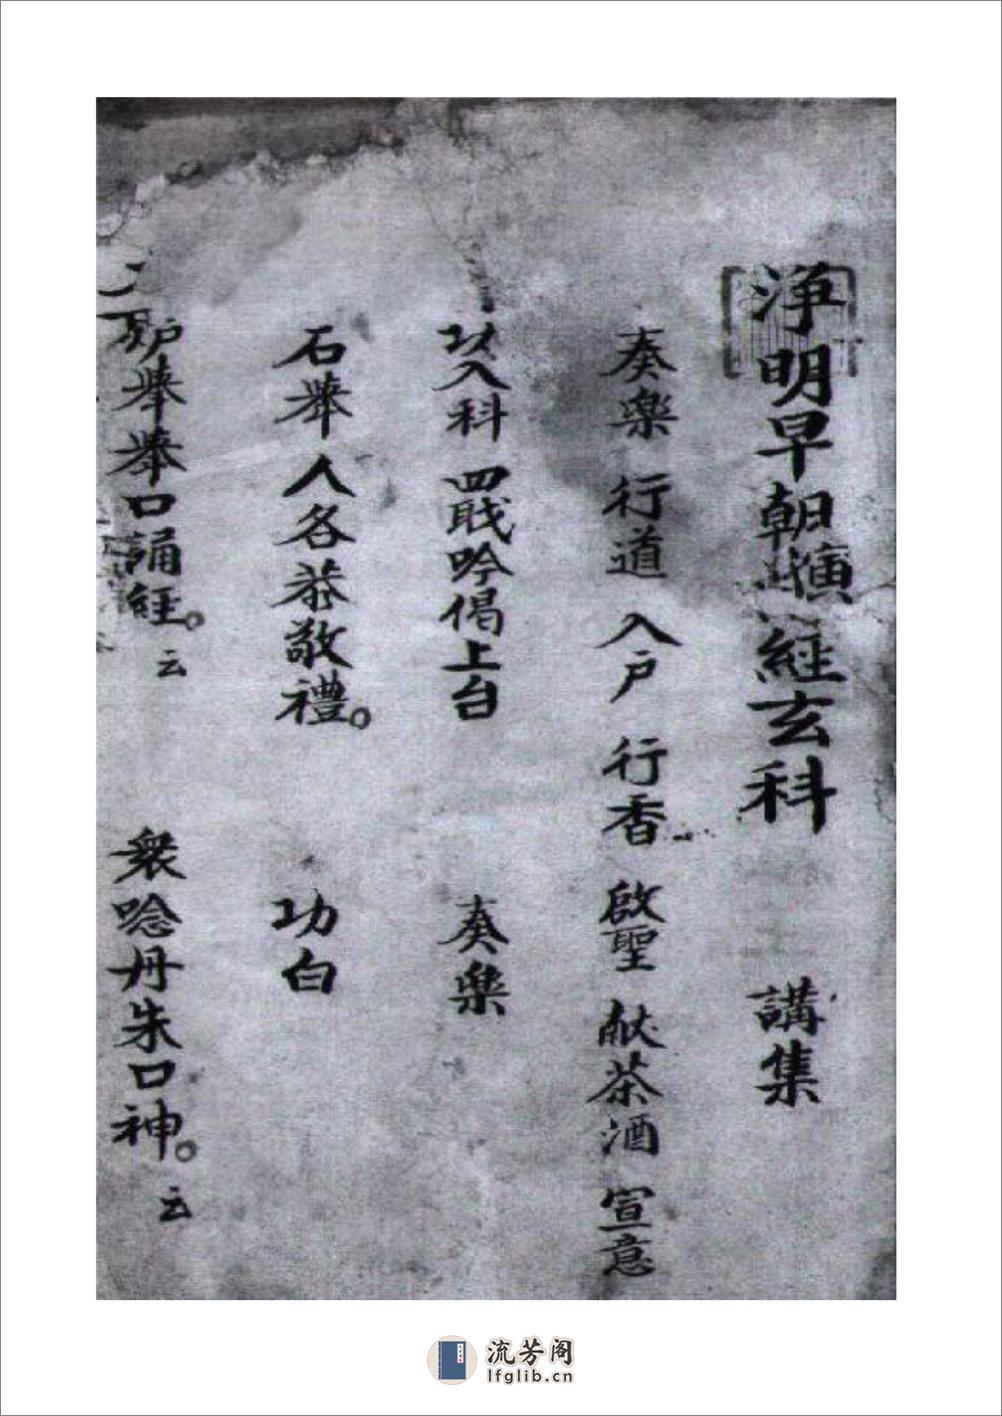 淨明早朝演經玄科 講集
奏樂 行道 入戶 行香 啟聖 献茶酒 宣意
以入科 四戝吟偈上台 奏樂
石舉 人各恭敬禮。 功白
炉舉舉口誦經。云 衆唸丹朱口神。云
流芳阁
lfglib.cn